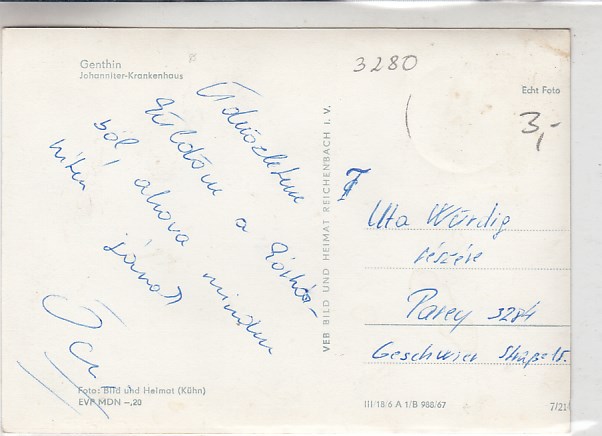 Genthin
Johanniter-Krankenhaus
3280
Echt Foto
3,-
Üdvözletem
küldöm a Kórház-
ból, ahova minden
héten
járnak
VEB BILD UND HEIMAT REICHENBACH I. V.
Uta Würdig
részére
Parey 3284
Geschwister Straße 15.
Foto: Bild und Heimat (Kühn)
EVP MDN -,20
III/18/6 A 1/B 988/67
7/21